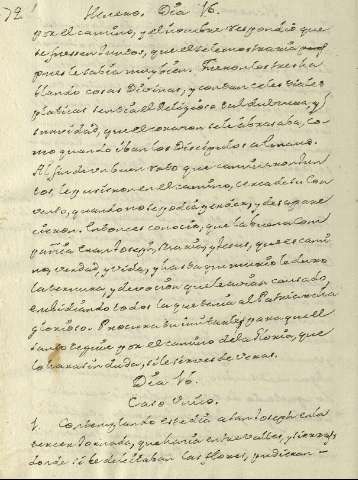 72
Heleno. Dia 16.
por el camino, y el hombre respondió que
se fuessen juntos, que el se lo mostraria
pues le sabia muy bien. Fueron los tres ha
blando cosas Divinas, y con tan celestiales
platicas sentia el Religioso tal dulzura, y
suavidad, que el corazon se le abrasaba, co
mo quando iban los Discipulos a Emaus.
Al fin de un buen rato que caminaron jun
tos, le pusieron en el camino, cerca de su Con
vento, quando no se podia perder, y desapare
cieron. Entonces conoció, que la buena com
pañia eran Joseph, Maria, y Jesus, que es cami
no, verdad, y vida, y hasta que murió le duró
la ternura, y devocion que le avian causado,
embidiando todos la que tenia al Patriarcha
glorioso. Procura tu imitarle, para que el
santo te guie por el camino de la Gloria, que
lo hara sin duda, si le sirves de veras.
Dia 16.
Caso Unico.
1. Contemplando este dia a San Joseph en la
tercer Jornada, que haria entre valles, y sierras,
donde si le deleitaban las flores, pudieran